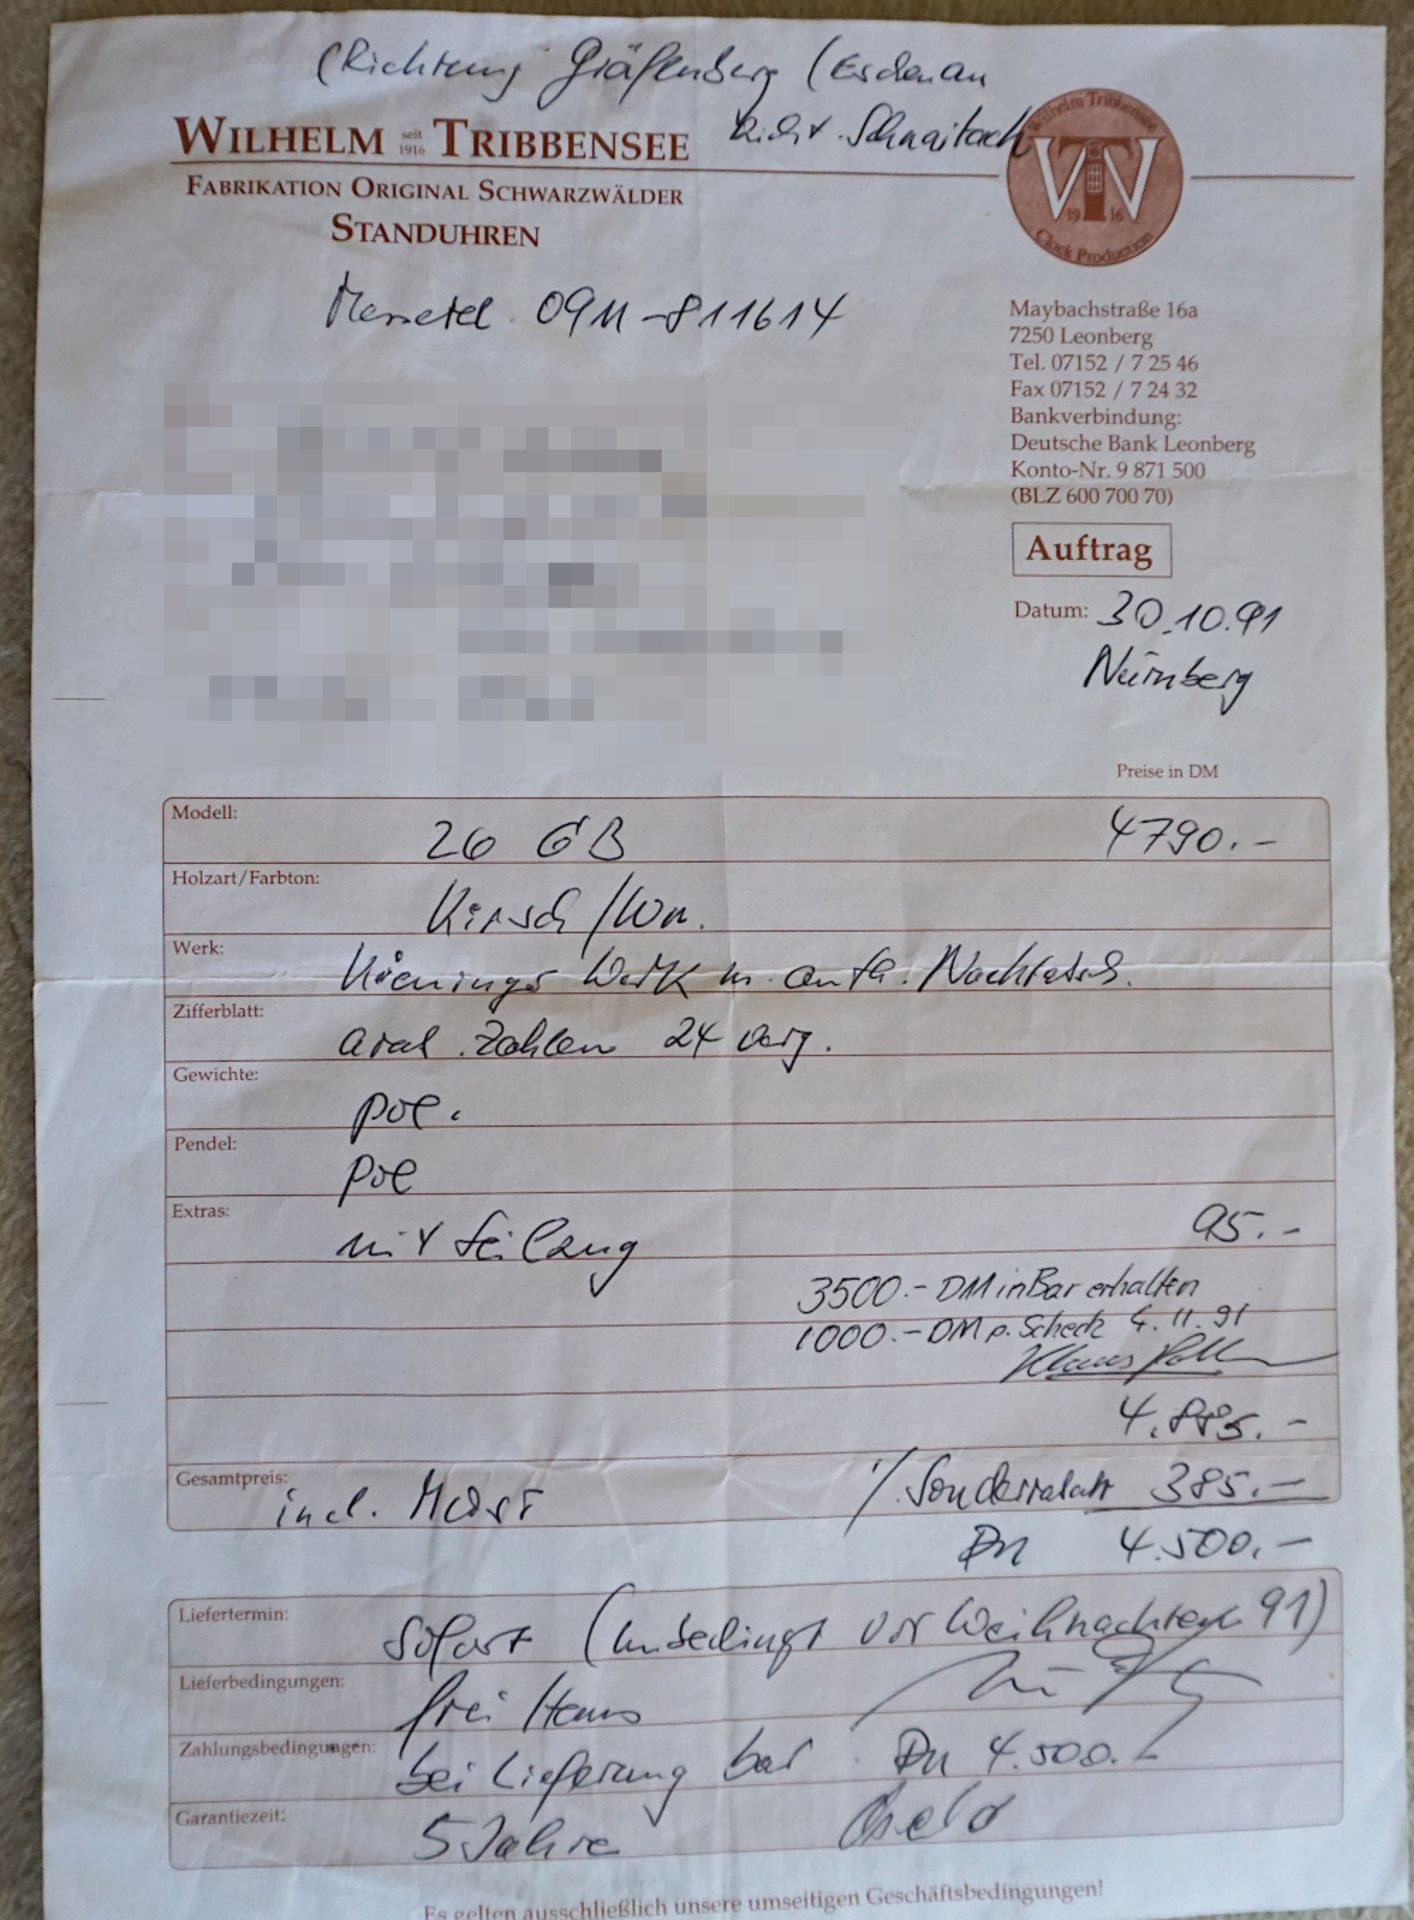 (Richtung Gräfenberg (Eschenau
Richt. Schnaitach
WILHELM seit 1916 TRIBBENSEE
FABRIKATION ORIGINAL SCHWARZWÄLDER
STANDUHREN
Wilhelm Tribbensee
VTV
19 16
Clock Production
Messetel. 0911-811614
Maybachstraße 16a
7250 Leonberg
Tel. 07152 / 7 25 46
Fax 07152 / 7 24 32
Bankverbindung:
Deutsche Bank Leonberg
Konto-Nr. 9 871 500
(BLZ 600 700 70)
Auftrag
Datum: 30.10.91
Nürnberg
Preise in DM
Modell: 26 GB 4790.-
Holzart/Farbton: Kirsch
Werk: Werk m. Nachtabsch.
Zifferblatt: arab. Zahlen
Gewichte: pol.
Pendel: pol
Extras: mit Seilzug 95.-
3500.- DM in Bar erhalten
1000.- DM p. Scheck 4.11.91
Klaus
4.885.-
Gesamtpreis: incl. MwSt ./. Sonderrabatt 385.-
DM 4.500.-
Liefertermin: Sofort (unbedingt vor Weihnachten 91)
Lieferbedingungen: frei Haus
Zahlungsbedingungen: bei Lieferung bar. DM 4.500.-
Garantiezeit: 5 Jahre
Es gelten ausschließlich unsere umseitigen Geschäftsbedingungen!